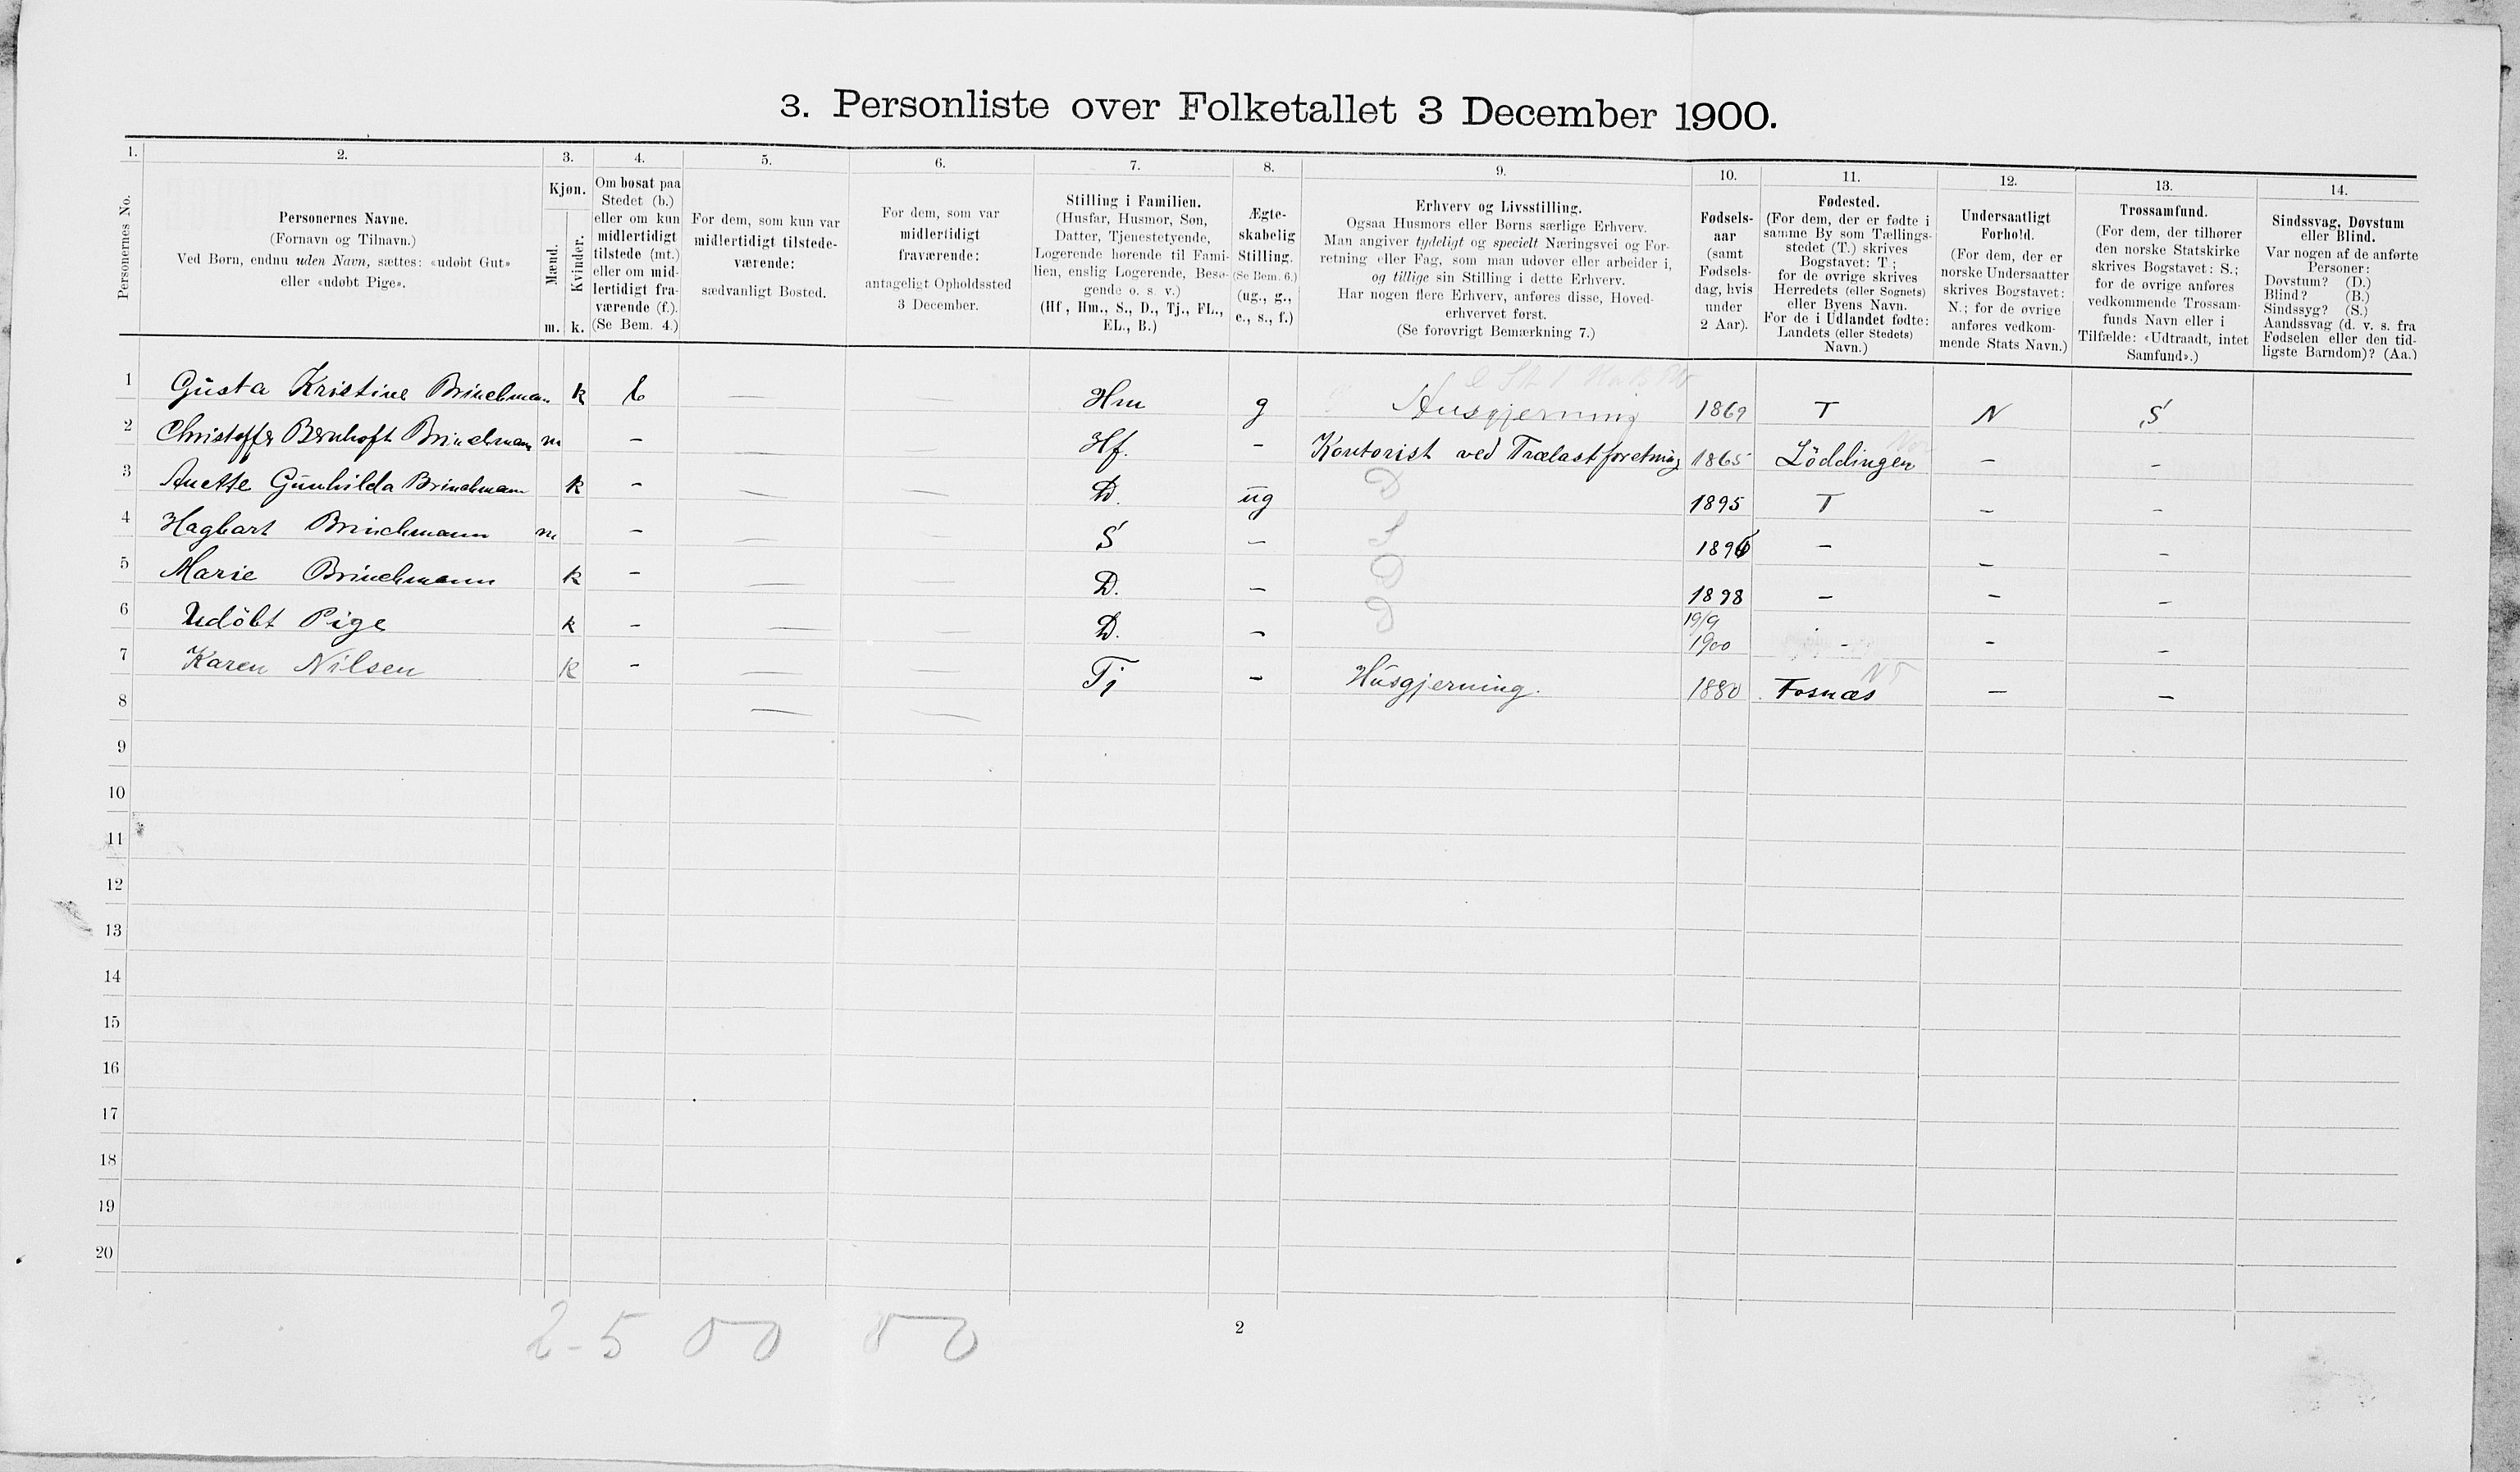 3. Personliste over Folketallet 3 December 1900.
1. 2. 3. 4. 5. 6. 7. 8. 9. 10. 11. 12. 13. 14.
Personernes No.
Personernes Navne.
(Fornavn og Tilnavn.)
Ved Børn, endnu uden Navn, sættes: «udøbt Gut»
eller «udøbt Pige».
Kjøn.
Mænd.
Kvinder.
m. k.
Om bosat paa
Stedet (b.)
eller om kun
midlertidigt
tilstede (mt.)
eller om mid-
lertidigt fra-
værende (f.).
(Se Bem. 4.)
For dem, som kun var
midlertidigt tilstede-
værende:
sædvanligt Bosted.
For dem, som var
midlertidigt
fraværende:
antageligt Opholdssted
3 December.
Stilling i Familien.
(Husfar, Husmor, Søn,
Datter, Tjenestetyende,
Logerende hørende til Fami-
lien, enslig Logerende, Besø-
gende o. s. v.)
(Hf., Hm., S., D., Tj., FL.,
EL., B.)
Ægte-
skabelig
Stilling.
(Se Bem. 6.)
(ug., g.,
e., s., f.)
Erhverv og Livsstilling.
Ogsaa Husmors eller Børns særlige Erhverv.
Man angiver tydeligt og specielt Næringsvei og For-
retning eller Fag, som man udøver eller arbeider i,
og tillige sin Stilling i dette Erhverv.
Har nogen flere Erhverv, anføres disse, Hoved-
erhvervet først.
(Se forøvrigt Bemærkning 7.)
Fødsels-
aar
(samt
Fødsels-
dag, hvis
under
2 Aar).
Fødested.
(For dem, der er fødte i
samme By som Tællings-
stedet (T.) skrives
Bogstavet: T;
for de øvrige skrives
Herredets (eller Sognets)
eller Byens Navn.
For de i Udlandet fødte:
Landets (eller Stedets)
Navn.)
Undersaatligt
Forhold.
(For dem, der er
norske Undersaatter
skrives Bogstavet:
N.; for de øvrige
anføres vedkom-
mende Stats Navn.)
Trossamfund.
(For dem, der tilhører
den norske Statskirke
skrives Bogstavet: S.;
for de øvrige anføres
vedkommende Trossam-
funds Navn eller i
Tilfælde: «Udtraadt, intet
Samfund».)
Sindssvag, Døvstum
eller Blind.
Var nogen af de anførte
Personer:
Døvstum? (D.)
Blind? (B.)
Sindssyg? (S.)
Aandssvag (d. v. s. fra
Fødselen eller den tid-
ligste Barndom)? (Aa.)
1 Gusta Kristine Brinchmann k b — — Hm g Husgjerning 1869 T N S
2 Christoffer Bernhoft Brinchmann m - — — Hf. - Kontorist ved Trælastforetning 1865 Löddingen - -
3 Anette Gunhilda Brinchmann k - — — D. ug D 1895 T - -
4 Hagbart Brinchmann m - — — S - S 1896 - - -
5 Marie Brinchmann k - — — D. - D 1898 - - -
6 Udöbt Pige k - — — D. - D 19/9 1900 - - -
7 Karen Nilsen k - — — Tj - Husgjerning. 1880 Fosnæs NT - -
8 — —
9
10
11
12
13
14
15
16
17
18
19
20
2-5 0 0 0 0
2